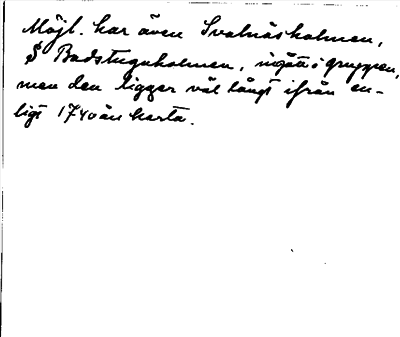 Möjl. har även Svalnäsholmen,
$ Badstuguholmen, ingått i gruppen,
men den ligger väl långt ifrån en-
ligt 1740 års karta.